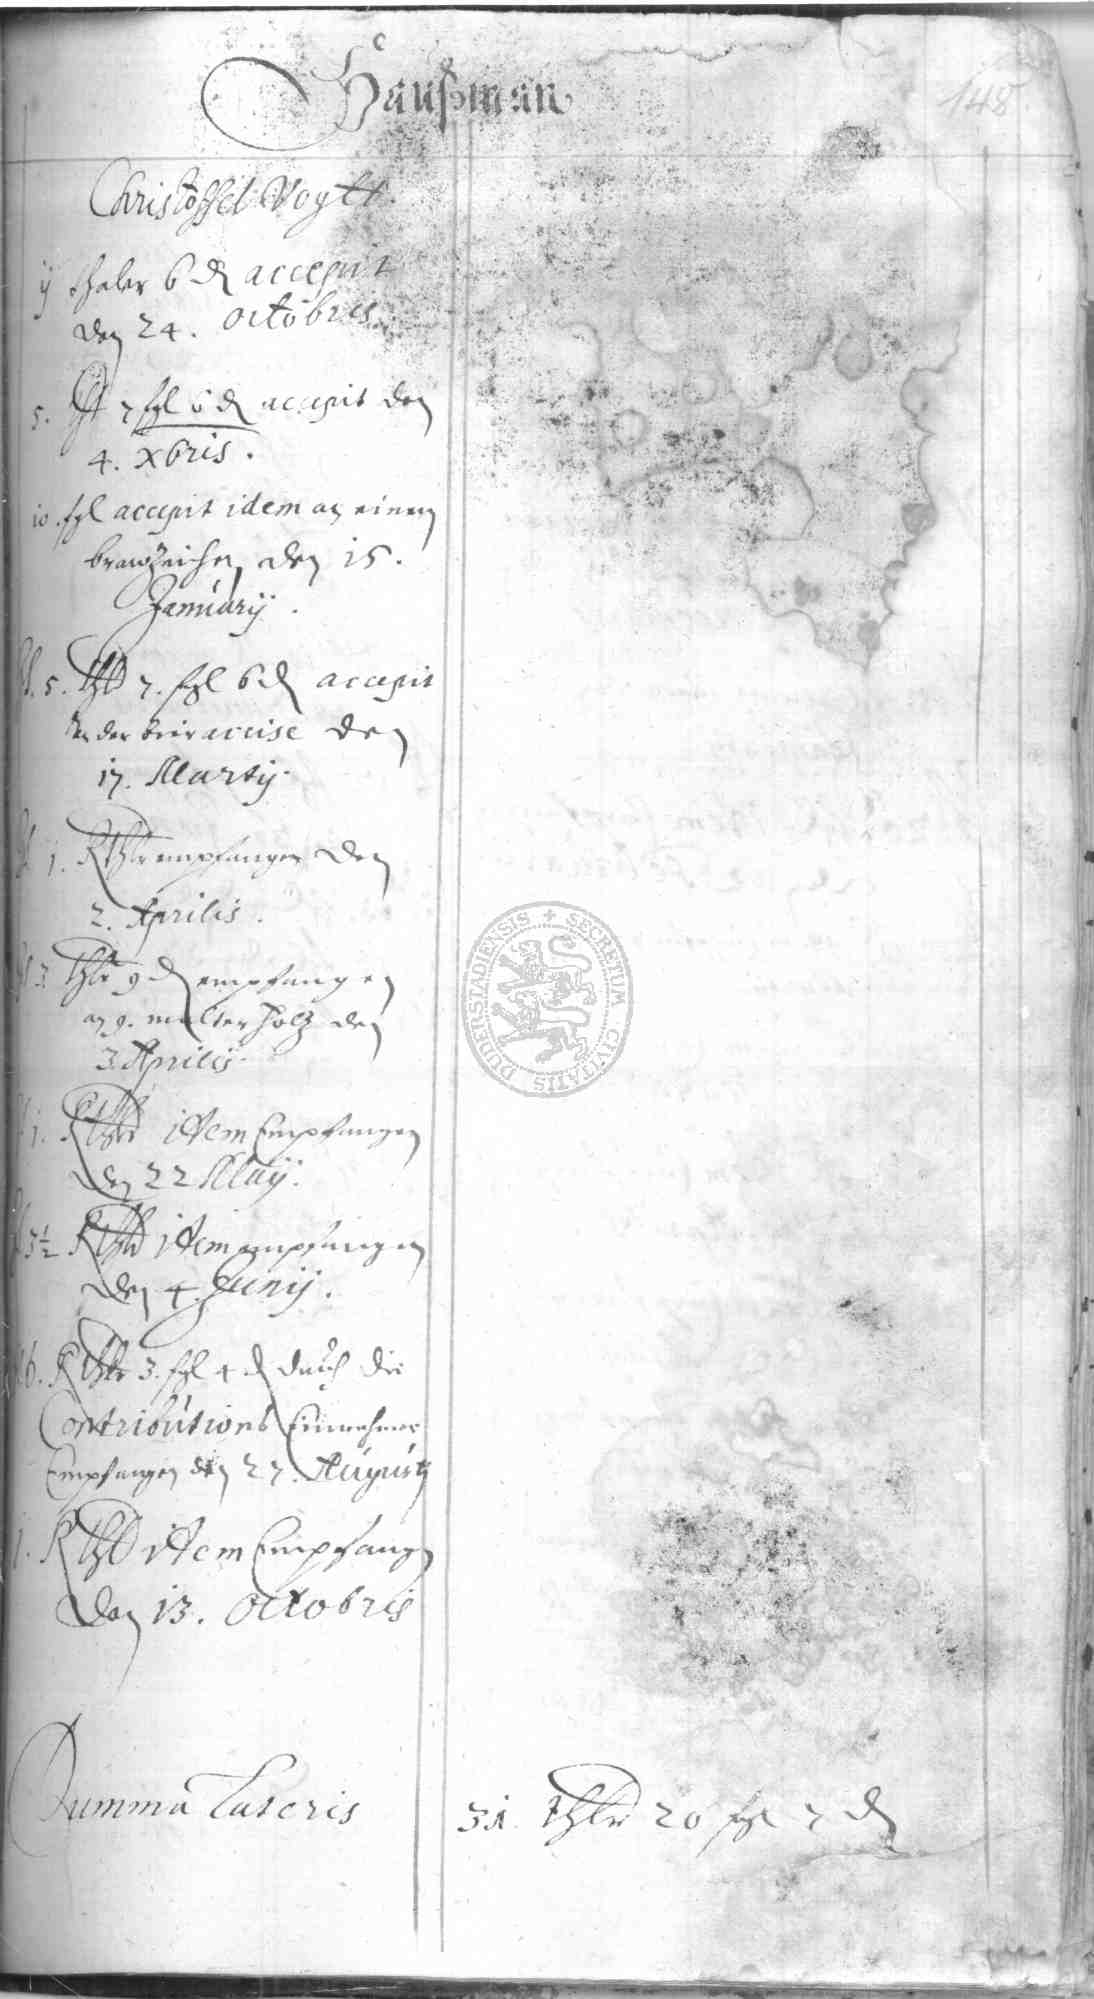 Haußman
148
Christoffel Vogtt
ij thaler 6 ₰ accepit
den 24. Octobris
5. thlr 7 sgl 6 ₰ accepit den
4. Xbris.
10. sgl accepit idem an einem
brawzeichen den 15.
January.
5. thlr 7. sgl 6 ₰ accepit
der bier accise den
17. Martij.
1. Rthlr empfangen den
2. Aprilis.
3 thlr 9 ₰ empfangen
an 9. malter holtz den
3. Aprilis.
1. Rthlr item Empfangen
den 22 Maij.
3½ Rthlr item empfangen
den 4. Junij.
6. Rthlr 3. sgl 4 ₰ durch die
Contributions Einnehmer
Empfangen den 27. Augusti
1. Rthlr item Empfangen
den 13. Octobris
Summa Lateris 31. thlr 20 sgl 7 ₰
SECRETUM CIVITATIS DUDERSTADIENSIS